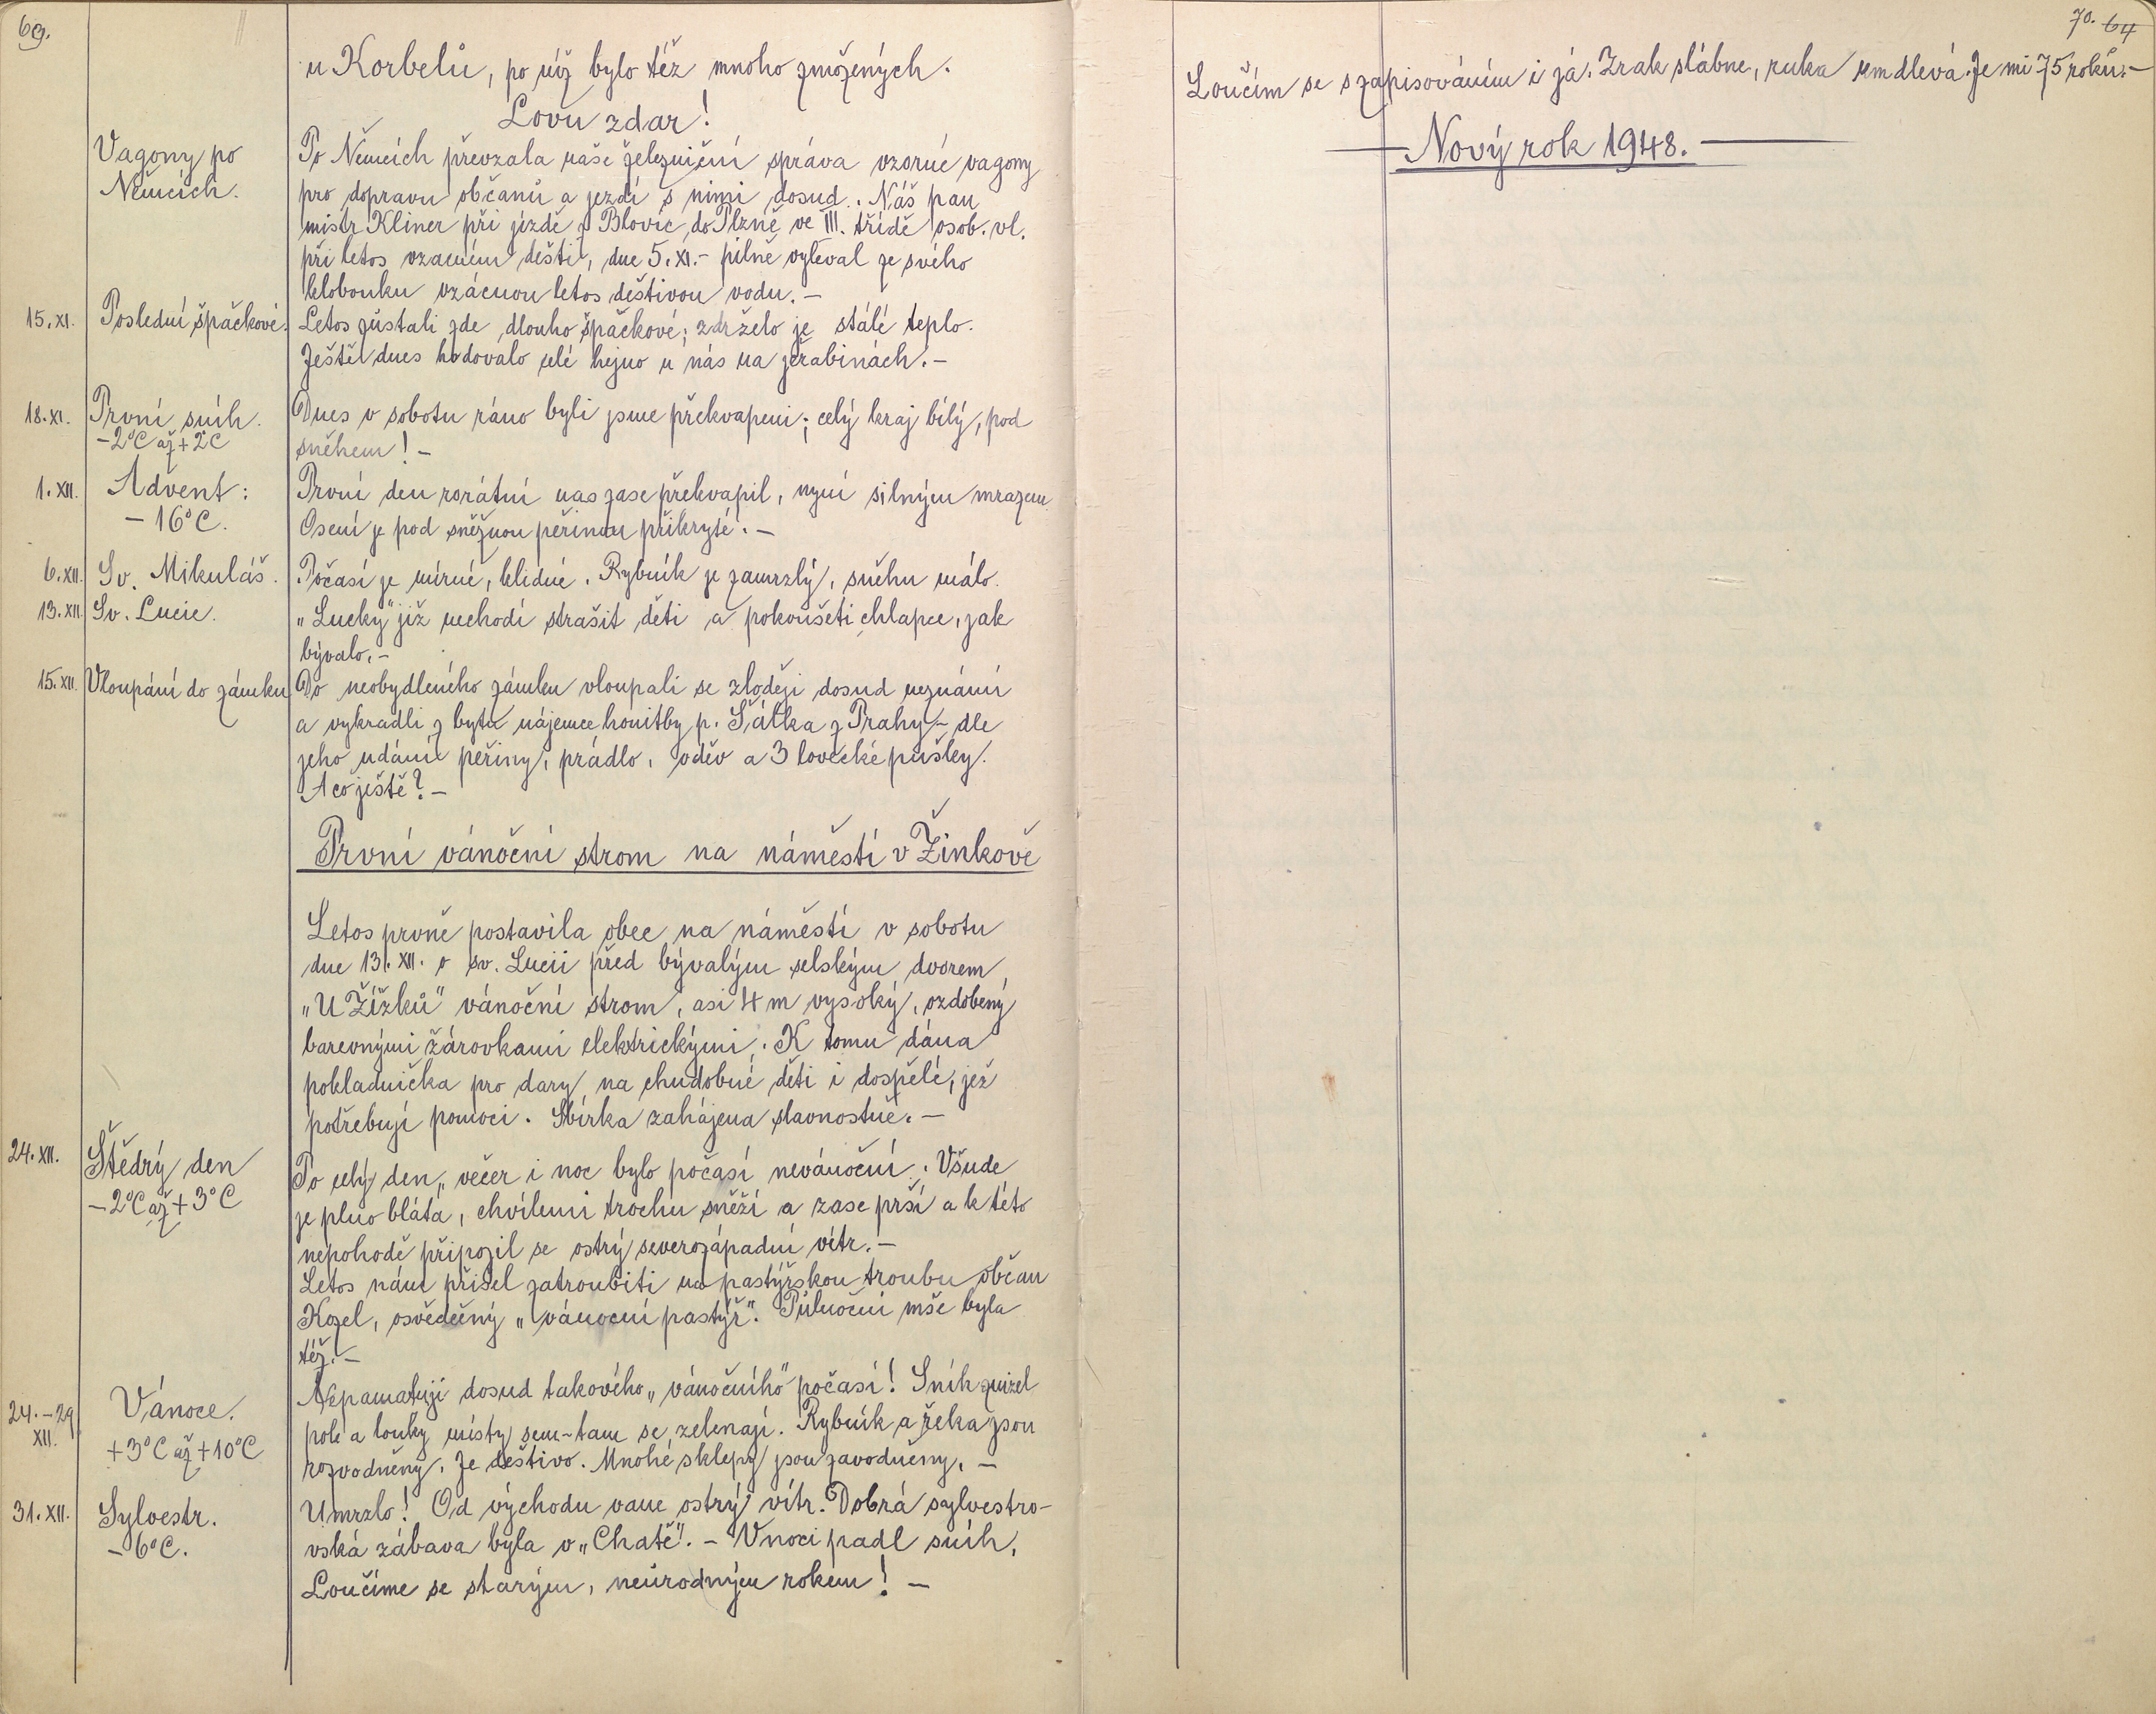 69.
u Korbelů, po níž bylo též mnoho zmožených.
Lovu zdar!
Vagony po
Němcích.
Po Němcích převzala naše železniční správa vzorné vagony
pro dopravu občanů a jezdí s nimi dosud. Náš pan
mistr Kliner při jízdě z Blovic do Plzně ve III. třídě osob. vl.
při letos vzácném dešti, dne 5. XI.- pilně vyléval ze svého
klobouku vzácnou letos deštivou vodu.-
15. XI. Poslední špačkové. Letos zůstali zde dlouho špačkové; zdrželo je stálé teplo.
Ještě dnes hodovalo celé hejno u nás na jeřabinách.-
18. XI. První sníh. Dnes v sobotu ráno byli jsme překvapeni; celý kraj bílý, pod
-2°C až +2°C
sněhem! -
1. XII. Advent: První den rorátní nás zase překvapil, nyní silným mrazem.
-16°C. Osení je pod sněžnou peřinou přikryté. -
6. XII. Sv. Mikuláš. Počasí je mírné, klidné. Rybník je zamrzlý, sněhu málo.
13. XII. Sv. Lucie. „Lucky" již nechodí strašit děti a pokoušeti chlapce, jak
bývalo.-
15. XII. Vloupání do zámku Do neobydleného zámku vloupali se zloději dosud neznámí
a vykradli z bytu nájemce honitby p. Šátka z Prahy - dle
jeho udání peřiny, prádlo, oděv a 3 lovecké pušky.
A co ještě? -
První vánoční strom na náměstí v Žinkově
Letos prvně postavila obec na náměstí v sobotu
dne 13. XII. o sv. Lucii před bývalým selským dvorem
„U Žížků" vánoční strom, asi 4 m vysoký, ozdobený
barevnými žárovkami elektrickými. K tomu dána
pokladnička pro dary na chudobné děti i dospělé, jež
potřebují pomoci. Sbírka zahájena slavnostně. -
24. XII. Štědrý den Po celý den, večer i noc bylo počasí nevánoční. Všude
-2°C až +3°C je plno bláta, chvílemi trochu sněží a zase prší a k této
nepohodě připojil se ostrý severozápadní vítr. -
Letos nám přišel zatroubiti na pastýřskou troubu občan
Kozel, osvědčený „vánoční pastýř". Půlnoční mše byla
též. -
24. - 29. XII. Vánoce. Nepamatuji dosud takového „vánočního" počasí! Sníh zmizel
+3°C až +10°C pole a louky místy sem-tam se zelenají. Rybník a řeka jsou
rozvodněny. Je deštivo. Mnohé sklepy jsou zavodněny. -
31. XII. Sylvestr. Umrzlo! Od východu vane ostrý vítr. Dobrá sylvestro-
-6°C. vská zábava byla v „Chatě". - V noci padl sníh.
Loučíme se starým, neúrodným rokem! -
70. 64
Loučím se s zapisováním i já. Zrak slábne, ruka umdlevá. Je mi 75 roků. -
Nový rok 1948.